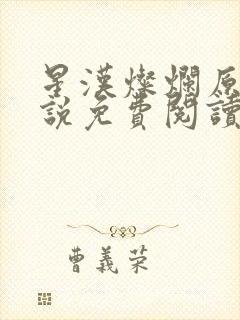 星漢燦爛原
說免費閱讀
曹義荣